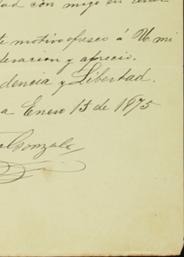 dad con migo en
te motivo ofresco á U mi
deracion y aprecio.
dencia y Libertad.
a Enero 15 de 1875
Gonzalez